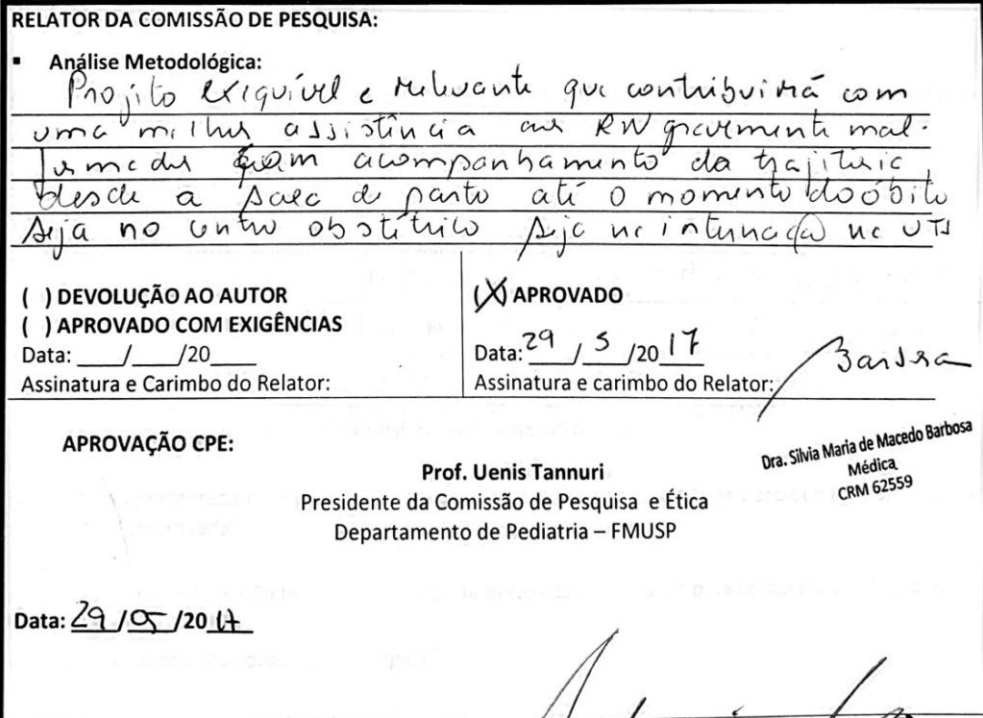 RELATOR DA COMISSÃO DE PESQUISA:
▪ Análise Metodológica:
Projeto exiquível e relevante que contribuirá com
uma melhor assistência aos RN gravemente mal-
formados com acompanhamento da trajetória
desde a sala de parto até o momento do óbito
seja no centro obstétrico seja na internação na UTI
( ) DEVOLUÇÃO AO AUTOR
( ) APROVADO COM EXIGÊNCIAS
Data: ____/____/20____
Assinatura e Carimbo do Relator:
(X) APROVADO
Data: 29 / 5 /20 17
Assinatura e carimbo do Relator:
Barbosa
Dra. Silvia Maria de Macedo Barbosa
Médica
CRM 62559
APROVAÇÃO CPE:
Prof. Uenis Tannuri
Presidente da Comissão de Pesquisa e Ética
Departamento de Pediatria – FMUSP
Data: 29 /05 /20 17